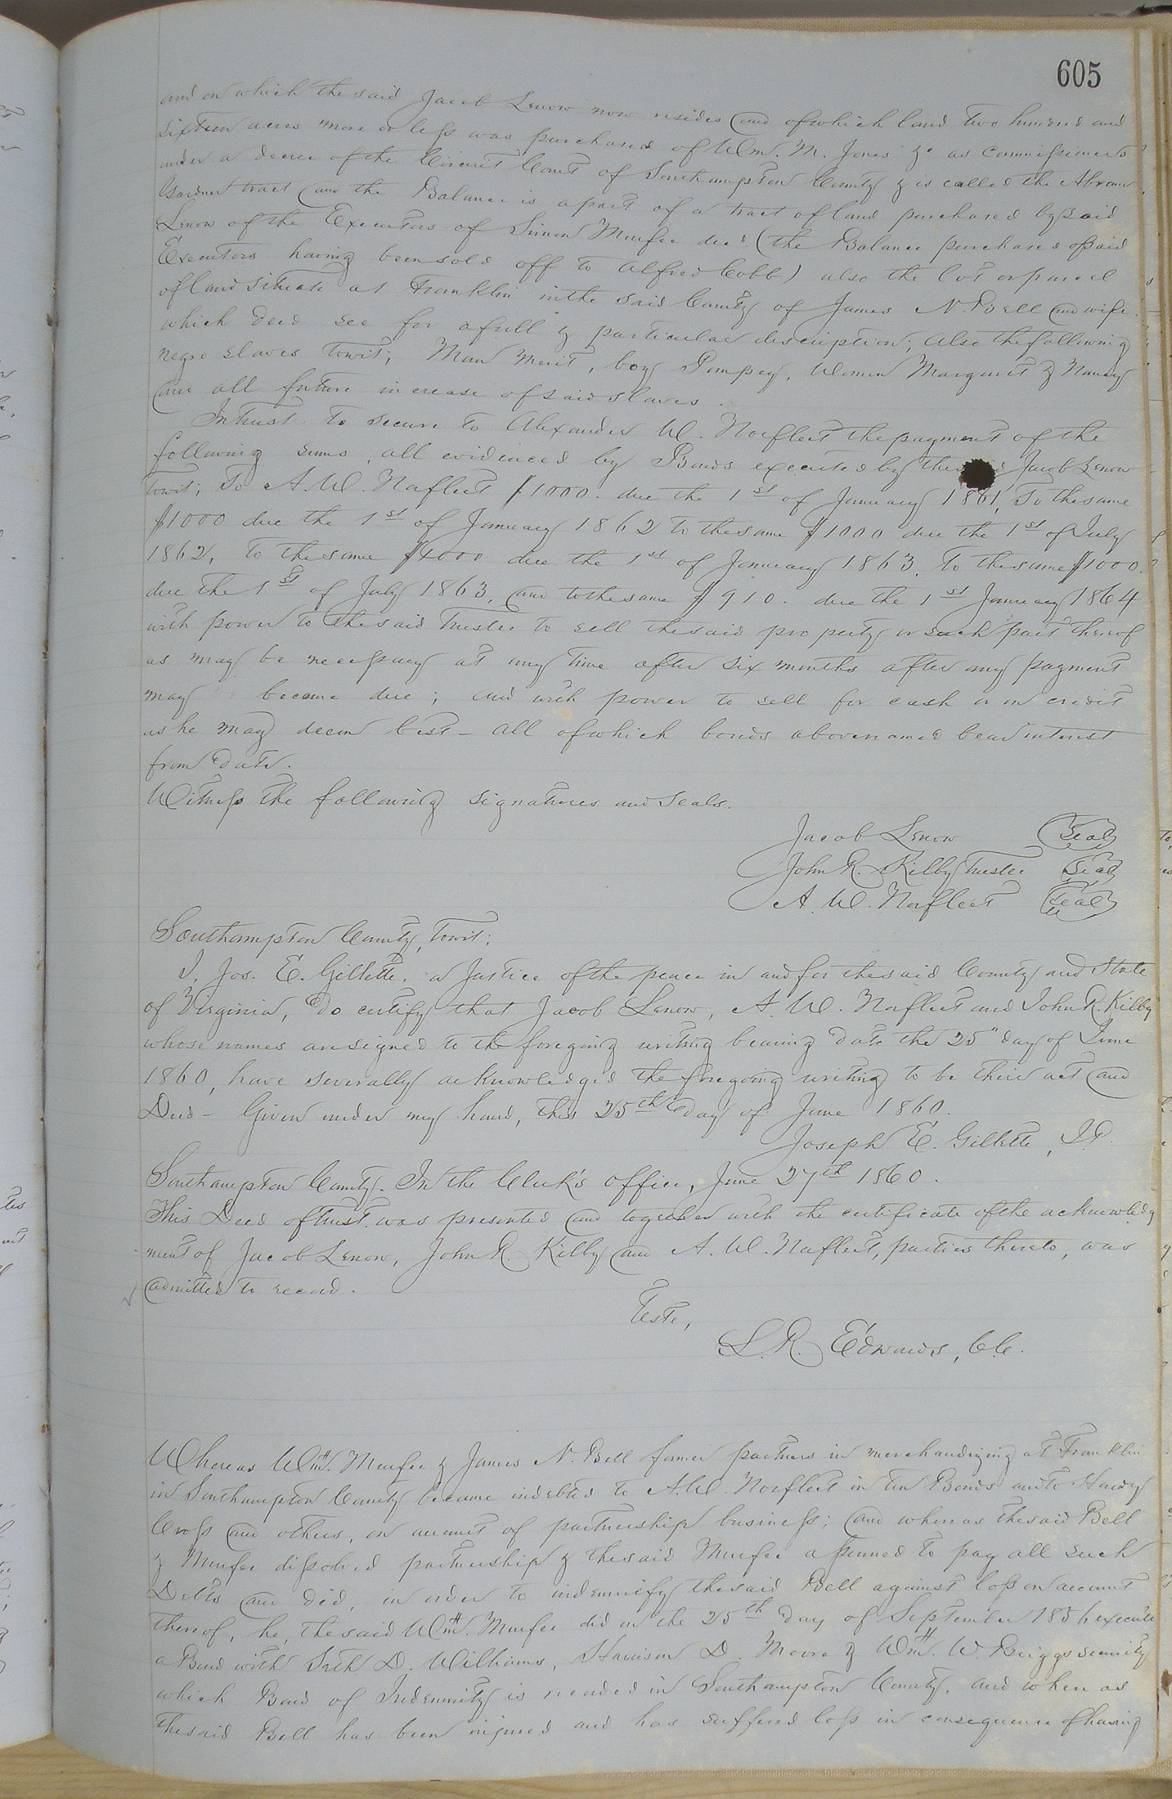 605
and on which the said Jacob Lenow now resides (and of which land two hundred and
sixteen acres more or less was purchased of Wm. M. Jones &c as Commissioners
under a decree of the Circuit Court of Southampton County & is called the Abram
Gardner tract (and the Balance is a part of a tract of land purchased by said
Lenow of the Executors of Simon Murfee decd (the Balance purchased of said
Executors having been sold off to Alfred Cobb) also the lot or parcel
of land situate at Franklin in the said County of James N. Bell and wife.
which deed see for a full & particular description; Also the following
negro slaves towit; Man Merit, boy Pompey, Women Margaret & Nancy
and all future increase of said slaves.
In trust to secure to Alexander W. Norfleet the payment of the
following sums, all evidenced by Bonds executed by the Jacob Lenow
towit; To A. W. Norfleet $1000. due the 1st of January 1861, To the same
$1000 due the 1st of January 1862 to the same $1000 due the 1st of July
1862, to the same $1000 due the 1st of January 1863, To the same $1000.
due the 1st of July 1863, and to the same $910. due the 1st January 1864
with power to the said Trustee to sell the said property or such part thereof
as may be necessary at any time after six months after any payment
may become due; and with power to sell for cash or on credit
as he may deem best – all of which bonds above named bear interest
from date.
Witness the following signatures and seals.
Jacob Lenow Seal
John R. Kilby Trustee Seal
A. W. Norfleet Seal
Southampton County, towit;
I, Jos. E. Gillette, a Justice of the peace in and for the said County and State
of Virginia, do certify that Jacob Lenow, A. W. Norfleet and John R. Kilby
whose names are signed to the foregoing writing bearing date the 25" day of June
1860, have severally acknowledged the foregoing writing to be their act and
Deed – Given under my hand, this 25th day of June 1860.
Joseph E. Gillette, J.P.
Southampton County. In the Clerk's office, June 27th 1860.
This Deed of trust was presented and together with the certificate of the acknowledg
ment of Jacob Lenow, John R. Kilby and A. W. Norfleet, parties thereto, was
admitted to record.
Teste,
L. R. Edwards, C.C.
Whereas Wm. H. Murfee & James N. Bell former partners in merchandizing at Franklin
in Southampton County became indebted to A. W. Norfleet in ten Bonds and to Hardy
Cross and others, on account of partnership business; and whereas the said Bell
& Murfee dissolved partnership & the said Murfee assumed to pay all such
Debts and did, in order to indemnify the said Bell against loss on account
thereof, he, the said Wm. H. Murfee did on the 25th day of September 1856 execute
a Bond with Seth D. Williams, Harrison D. Moore & Wm. H. W. Briggs security
which Bond of Indemnity is recorded in Southampton County. and when as
the said Bell has been injured and has suffered loss in consequence of having